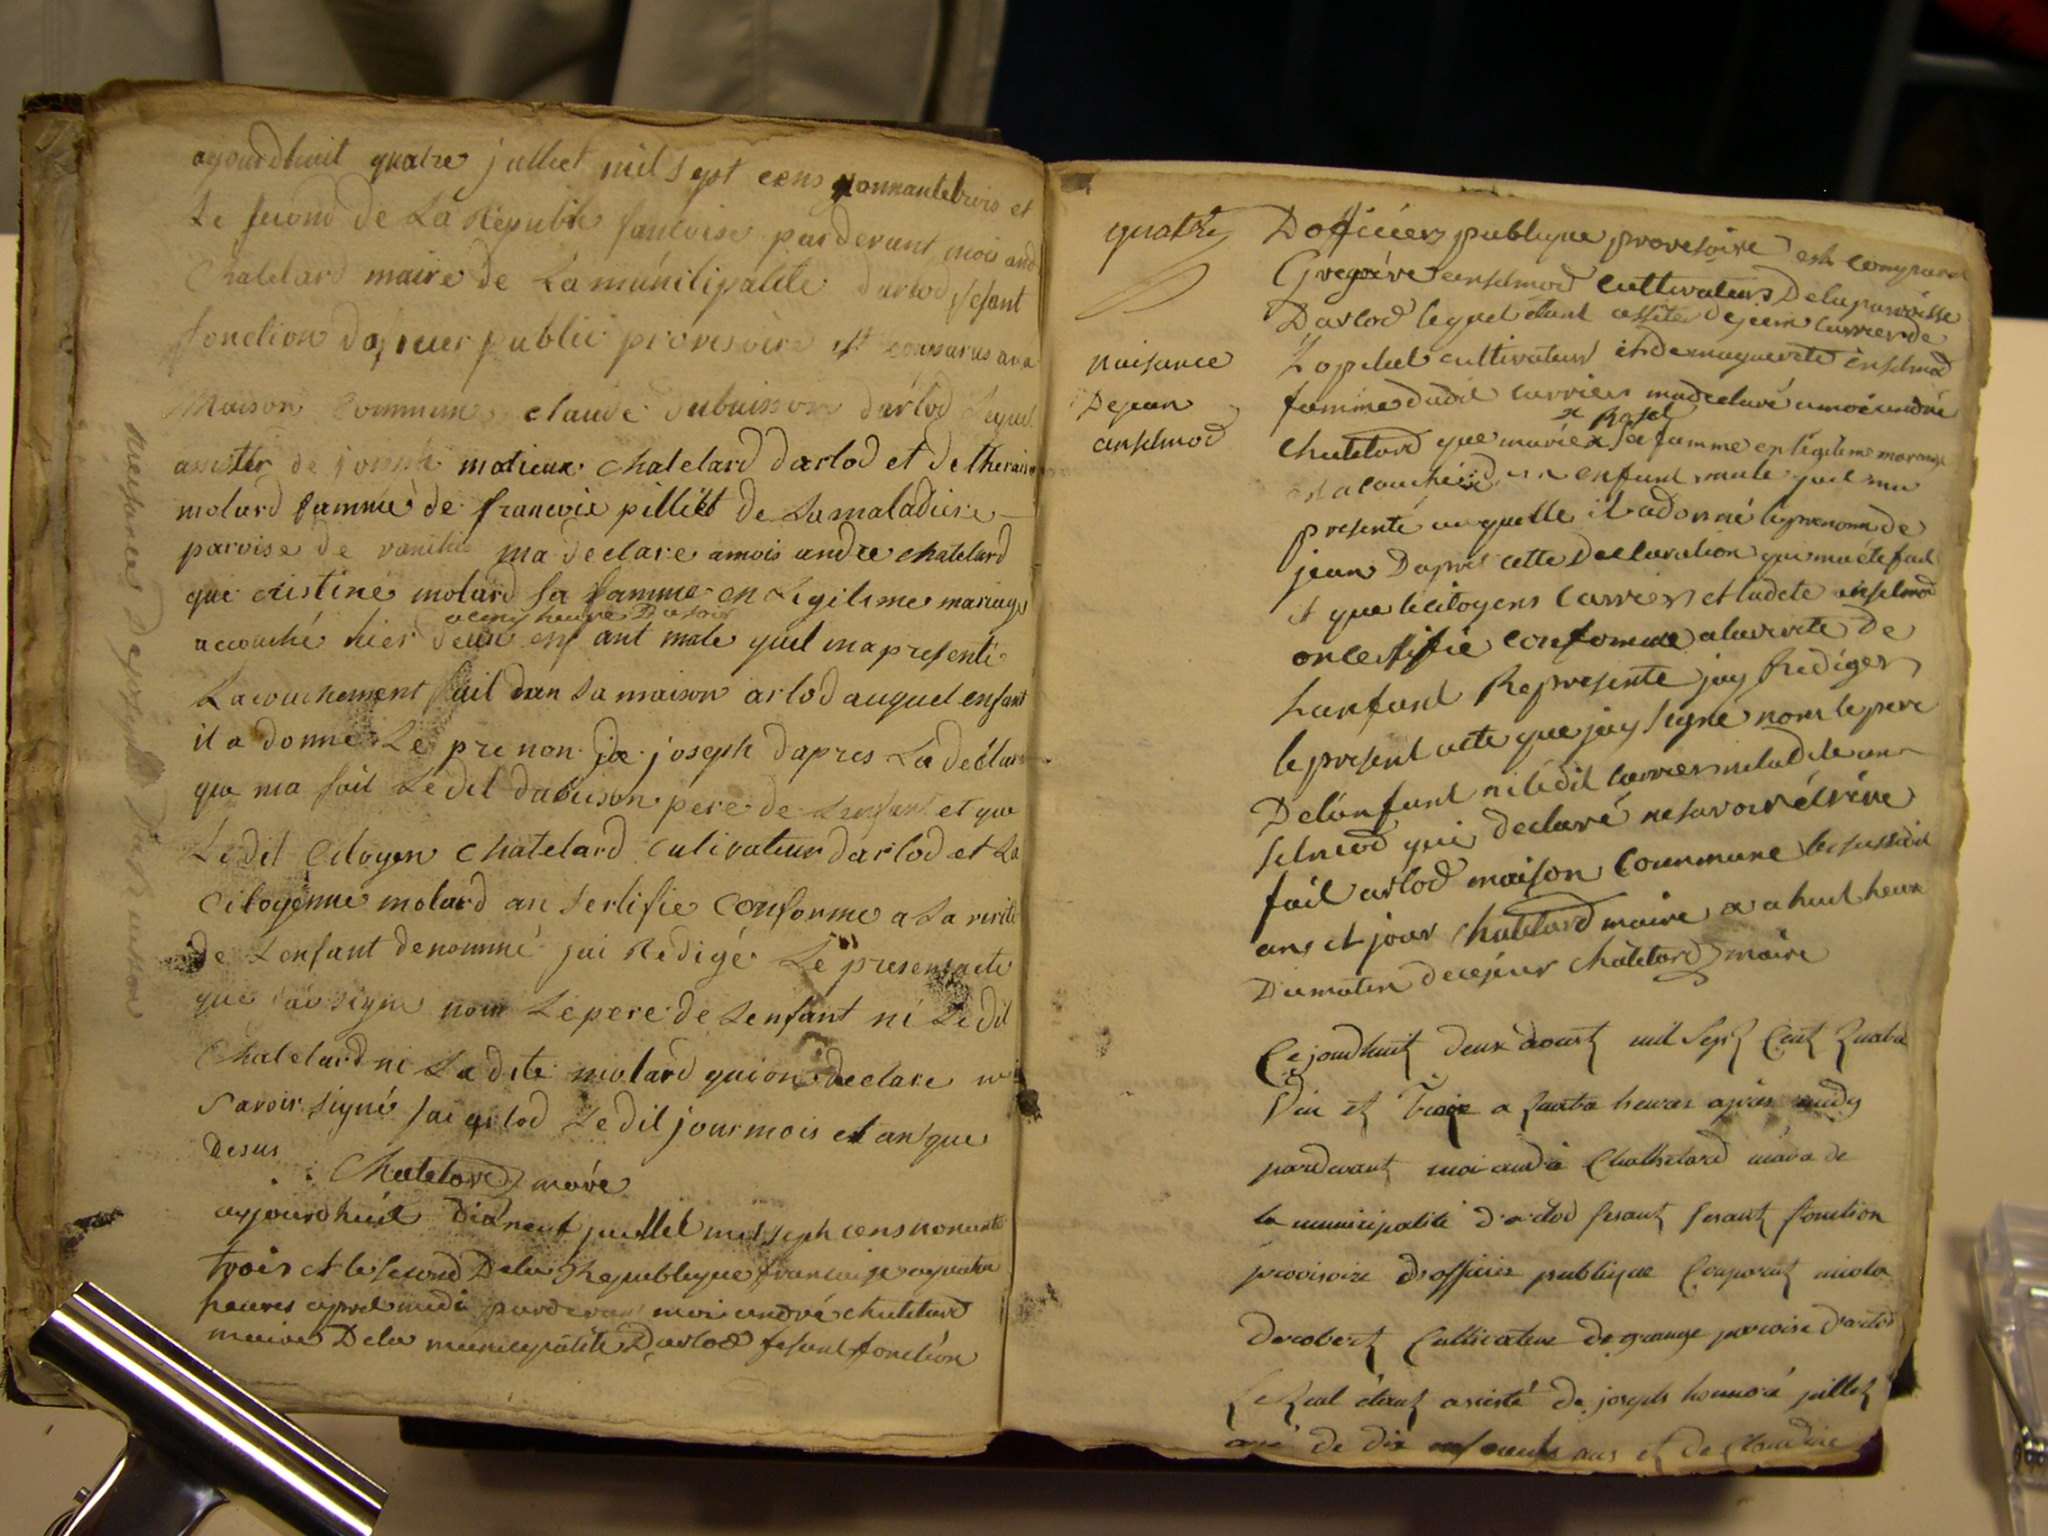 ajourdhuit quatre julliet mil sept cens nonnantetrois et
Le second de La Republi francoise pardevant mois and
Chatelard maire de La municipalite darlod fesant
fonction daficier public provisoire est conparus a
Maison Commune claude dubuisson darlod Lequel
assister de joseph matieux chatelard darlod et de
molard famme de francoie pillict de La maladiere
paroise de ma declare amois andre chatelard
qui cristine molard sa famme en Legitime mariage
a cinq heure Du soir
accouché hier enfant male quil ma presenté
Lacouchement fait dan sa maison arlod auquel enfant
il a donné Le prenon de joseph dapres La declara
que ma fait Ledit dubuison pere de Lenfant et que
Ledit Citoyen Chatelard culivateur darlod et La
Citoyenne molard an sertifie Conforme a La verité
de Lenfant denommé jai Redigé Le present acte
que jai signe non Le pere de Lenfant ni Ledit
Chatelard ni Ladite molard qui on declare ne
Savoir signé fai arlod Ledit jour mois et an que
Desus
Chatelard maire
ajourdhuit dix neuf juillet mil seph cens nonente
trois et le second Dela Republique francaise a quatre
heures apres midi pardevant moi andré chatelard
maire Dela municipalité Darlod fesant fonction
Naisance De joseph Dubuisson
quatre
naisance
De jean
anselmod
Dofficiers publique provisoire est comparu
anselmod cultivateurs Dela paroisse
Darlod lequel etant assité de jean carrier de
Lopchel cultivateur et de marguerite anselmod
famme dudit carrier ma declaré a moi andré
x Rosset
chatelard que marie x sa famme en legitime mariage
est acouché dun enfant male quil ma
presenté auquelle il a donné le prenom de
jean Dapres cette Declaration qui ma été fait
et que le citoyens Carrier et ladite anselmod
on certifie conforme a la verite De
Lanfant Represente jay Rediger
le present acte que jay signé nons le pere
De lanfant ni ledit carrier ni ladite an
selmod qui declaré ne savoir écrire
fait arlod maison Commune les susdit
ans et jour Chatelard maire x a huit heure
Du matin de ce jour chatelard maire
Cejourdhuit deux aoust mil Sept Cent Quatre
Vin et Treize a quatre heures apres midy
pardevant moi andre Chathelard maire de
la municipalité d'arlod fesant fesant fonction
provisoire d'officier publique Comparut
derobert Cultivateur de grange paroise d'arlod
Lequel étant assisté de joseph honnoré pillet
agé de dix ans et de Claudine